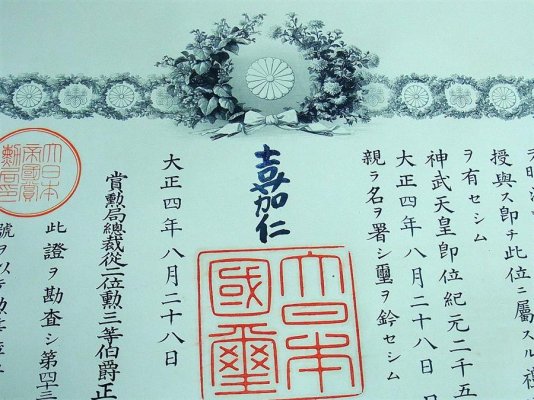 授與ス即チ此位ニ屬スル禮
ヲ有セシム
神武天皇即位紀元二千五
大正四年八月二十八日
親ラ名ヲ署シ璽ヲ鈐セシム
嘉仁
大日本
國璽
大正四年八月二十八日
賞勲局總裁從二位勲三等伯爵正
此證ヲ勘査シ第四十三
大日本
帝國賞
勲局印